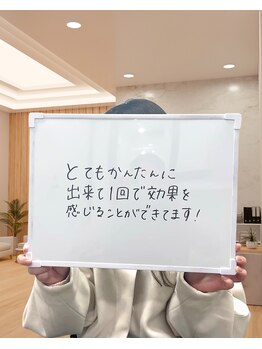 とてもかんたんに
出来て1回で効果を
感じることができてます!